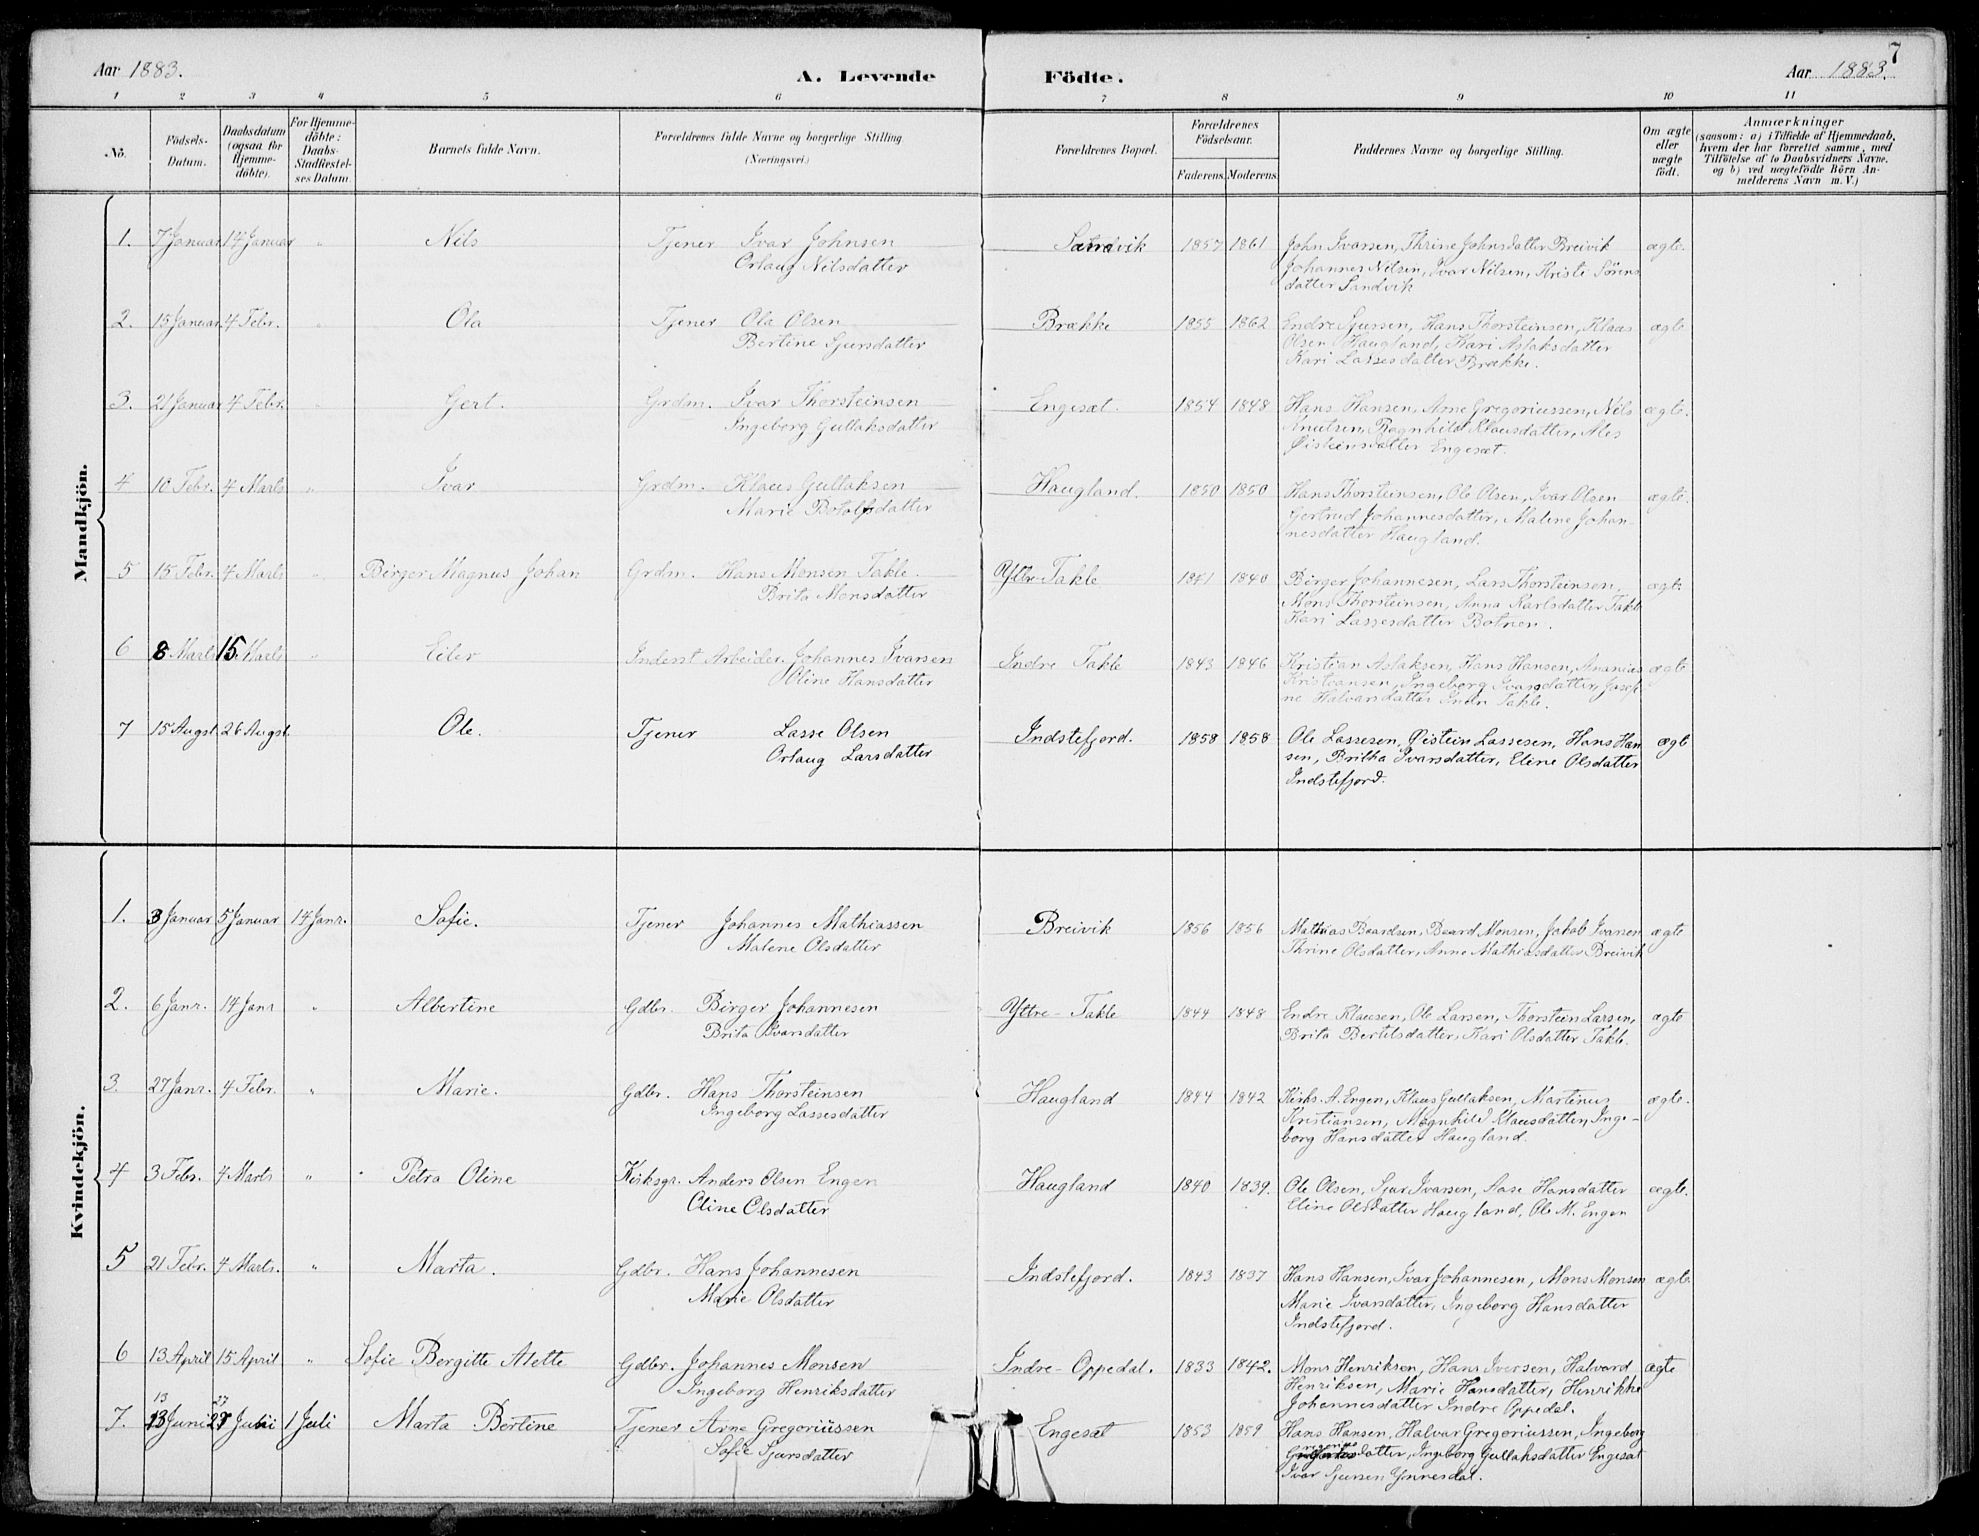 7
Aar 1883. A. Levende Födte. Aar 1883.
1 2 3 4 5 6 7 8 9 10 11
No.
Födsels-Datum.
Daabsdatum (ogsaa for Hjemmedöbte).
For Hjemmedöbte: Daabs-Stadfæstelses Datum.
Barnets fulde Navn.
Forældrenes fulde Navne og borgerlige Stilling (Næringsvei.)
Forældrenes Bopæl.
Forældrenes Födselsaar.
Faderens. Moderens.
Faddernes Navne og borgerlige Stilling.
Om ægte eller uægte födt.
Anmærkninger
(saasom: a) i Tilfælde af Hjemmedaab,
hvem der har forrettet samme, med
Tilföielse af to Daabsvidners Navne.
og b) ved uægtefödte Börn An-
melderens Navn m. V.)
Mandkjön.
1. 7 Januar 14 Januar " Nils Tjener Ivar Johnsen Sandvik 1857 1861 John Ivarsen, Thrine Johnsdatter Breivik ægte.
Orlaug Nilsdatter Johannes Nilsen, Ivar Nilsen, Kristi Sörens
datter Sandvik
2. 15 Januar 4 Febr. " Ola Tjener Ola Olsen Brække 1855 1862 Endre Sjursen, Hans Thorsteinsen, Klaus ægte
Bertine Sjursdatter Olsen Haugland, Kari Aslaksdatter
Kari Lassesdatter Brække.
3. 21 Januar 4 Febr. " Gert. Grdm. Ivar Thorsteinsen Engesæt. 1854 1848 Hans Hansen, Arne Gregoriussen, Nils ægte.
Ingeborg Gullaksdatter Knutsen, Ragnhild Klausdatter, Ales
Øisteinsdatter Engesæt.
4 10 Febr. 4 Marts " Ivar Grdm. Klaus Gullaksen Haugland. 1850 1850 Hans Thorsteinsen, Ole Olsen, Ivar Olsen ægte.
Marie Botolfsdatter Gertrud Johannesdatter, Malene Johan-
nesdatter Haugland.
5 15 Febr. 4 Marts " Birger Magnus Johan Grdm. Hans Monsen Takle. Yttre-Takle 1841 1840 Birger Johannesen, Lars Thorsteinsen, ægte
Brita Monsdatter Mons Thorsteinsen, Anna Karlsdatter Takle
Kari Lassesdatter Botnen.
6 8 Marts 15 Marts " Eiler Inderst Arbeider. Johannes Ivarsen Indre Takle 1843 1846 Kristian Aslaksen, Hans Hansen, Ananias ægte
Oline Hansdatter Kristiansen, Ingeborg Ivarsdatter, Josefi-
ne Halvarsdatter Indre Takle.
7 15 Augst. 26 Augst. Ole. Tjener Lasse Olsen Indstefjord. 1858 1858 Ole Lassesen, Øistein Lassesen, Hans Han ægte
Orlaug Larsdatter sen, Britha Ivarsdatter, Eline Olsdatter
Indstefjord.
Kvindekjön.
1. 3 Januar 5 Januar 14 Janr. Sofie. Tjener Johannes Mathiassen Breivik 1856 1856 Mathias Baardsen, Baard Monsen, Jakob Ivarsen ægte
Malene Olsdatter Thrine Olsdatter, Anne Mathiasdatter Breivik
2. 6 Janr. 14 Janr " Albertine Gdbr. Birger Johannesen Yttre-Takle 1844 1848 Endre Klausen, Ole Larsen, Thorstein Larsen, ægte
Brita Ivarsdatter Brita Bertelsdatter, Kari Olsdatter Takle.
3. 27 Janr. 4 Febr. " Marie. Gdbr. Hans Thorsteinsen Haugland 1844 1842 Kirks. A. Engen, Klaus Gullaksen, Martinus ægte.
Ingeborg Lassesdatter Kristiansen, Magnhild Klausdatter, Inge-
borg Hansdatter Haugland.
4 3 Febr. 4 Marts " Petra Oline Kirksgr. Anders Olsen Engen Haugland 1840 1839. Ole Olsen, Sjur Ivarsen, Aase Hansdatter ægte.
Oline Olsdatter Eline Olsdatter Haugland, Ole M. Engen
5 21 Febr. 4 Marts. " Marta. Gdbr. Hans Johannesen Indstefjord. 1843 1837 Hans Hansen, Ivar Johannesen, Mons Monsen ægte.
Marie Olsdatter Marie Ivarsdatter, Ingeborg Hansdatter
Indstefjord.
6 13 April 15 April " Sofie Bergitte Alette Gdbr. Johannes Monsen Indre-Oppedal. 1833 1842. Mons Henriksen, Hans Iversen, Halvard ægte
Ingeborg Henriksdatter Henriksen, Marie Hansdatter, Henrikke
Johannesdatter Indre Oppedal.
13 27
7. 13 Juni 27 Juni 1 Juli Marta Bertine Tjener Arne Gregoriussen Engesæt 1853 1859 Hans Hansen, Halvar Gregoriussen, Ingeborg
Sofie Sjursdatter datter, Ingeborg Gullaksdatter Engesæt
Ivar Sjursen Ynnesdal.